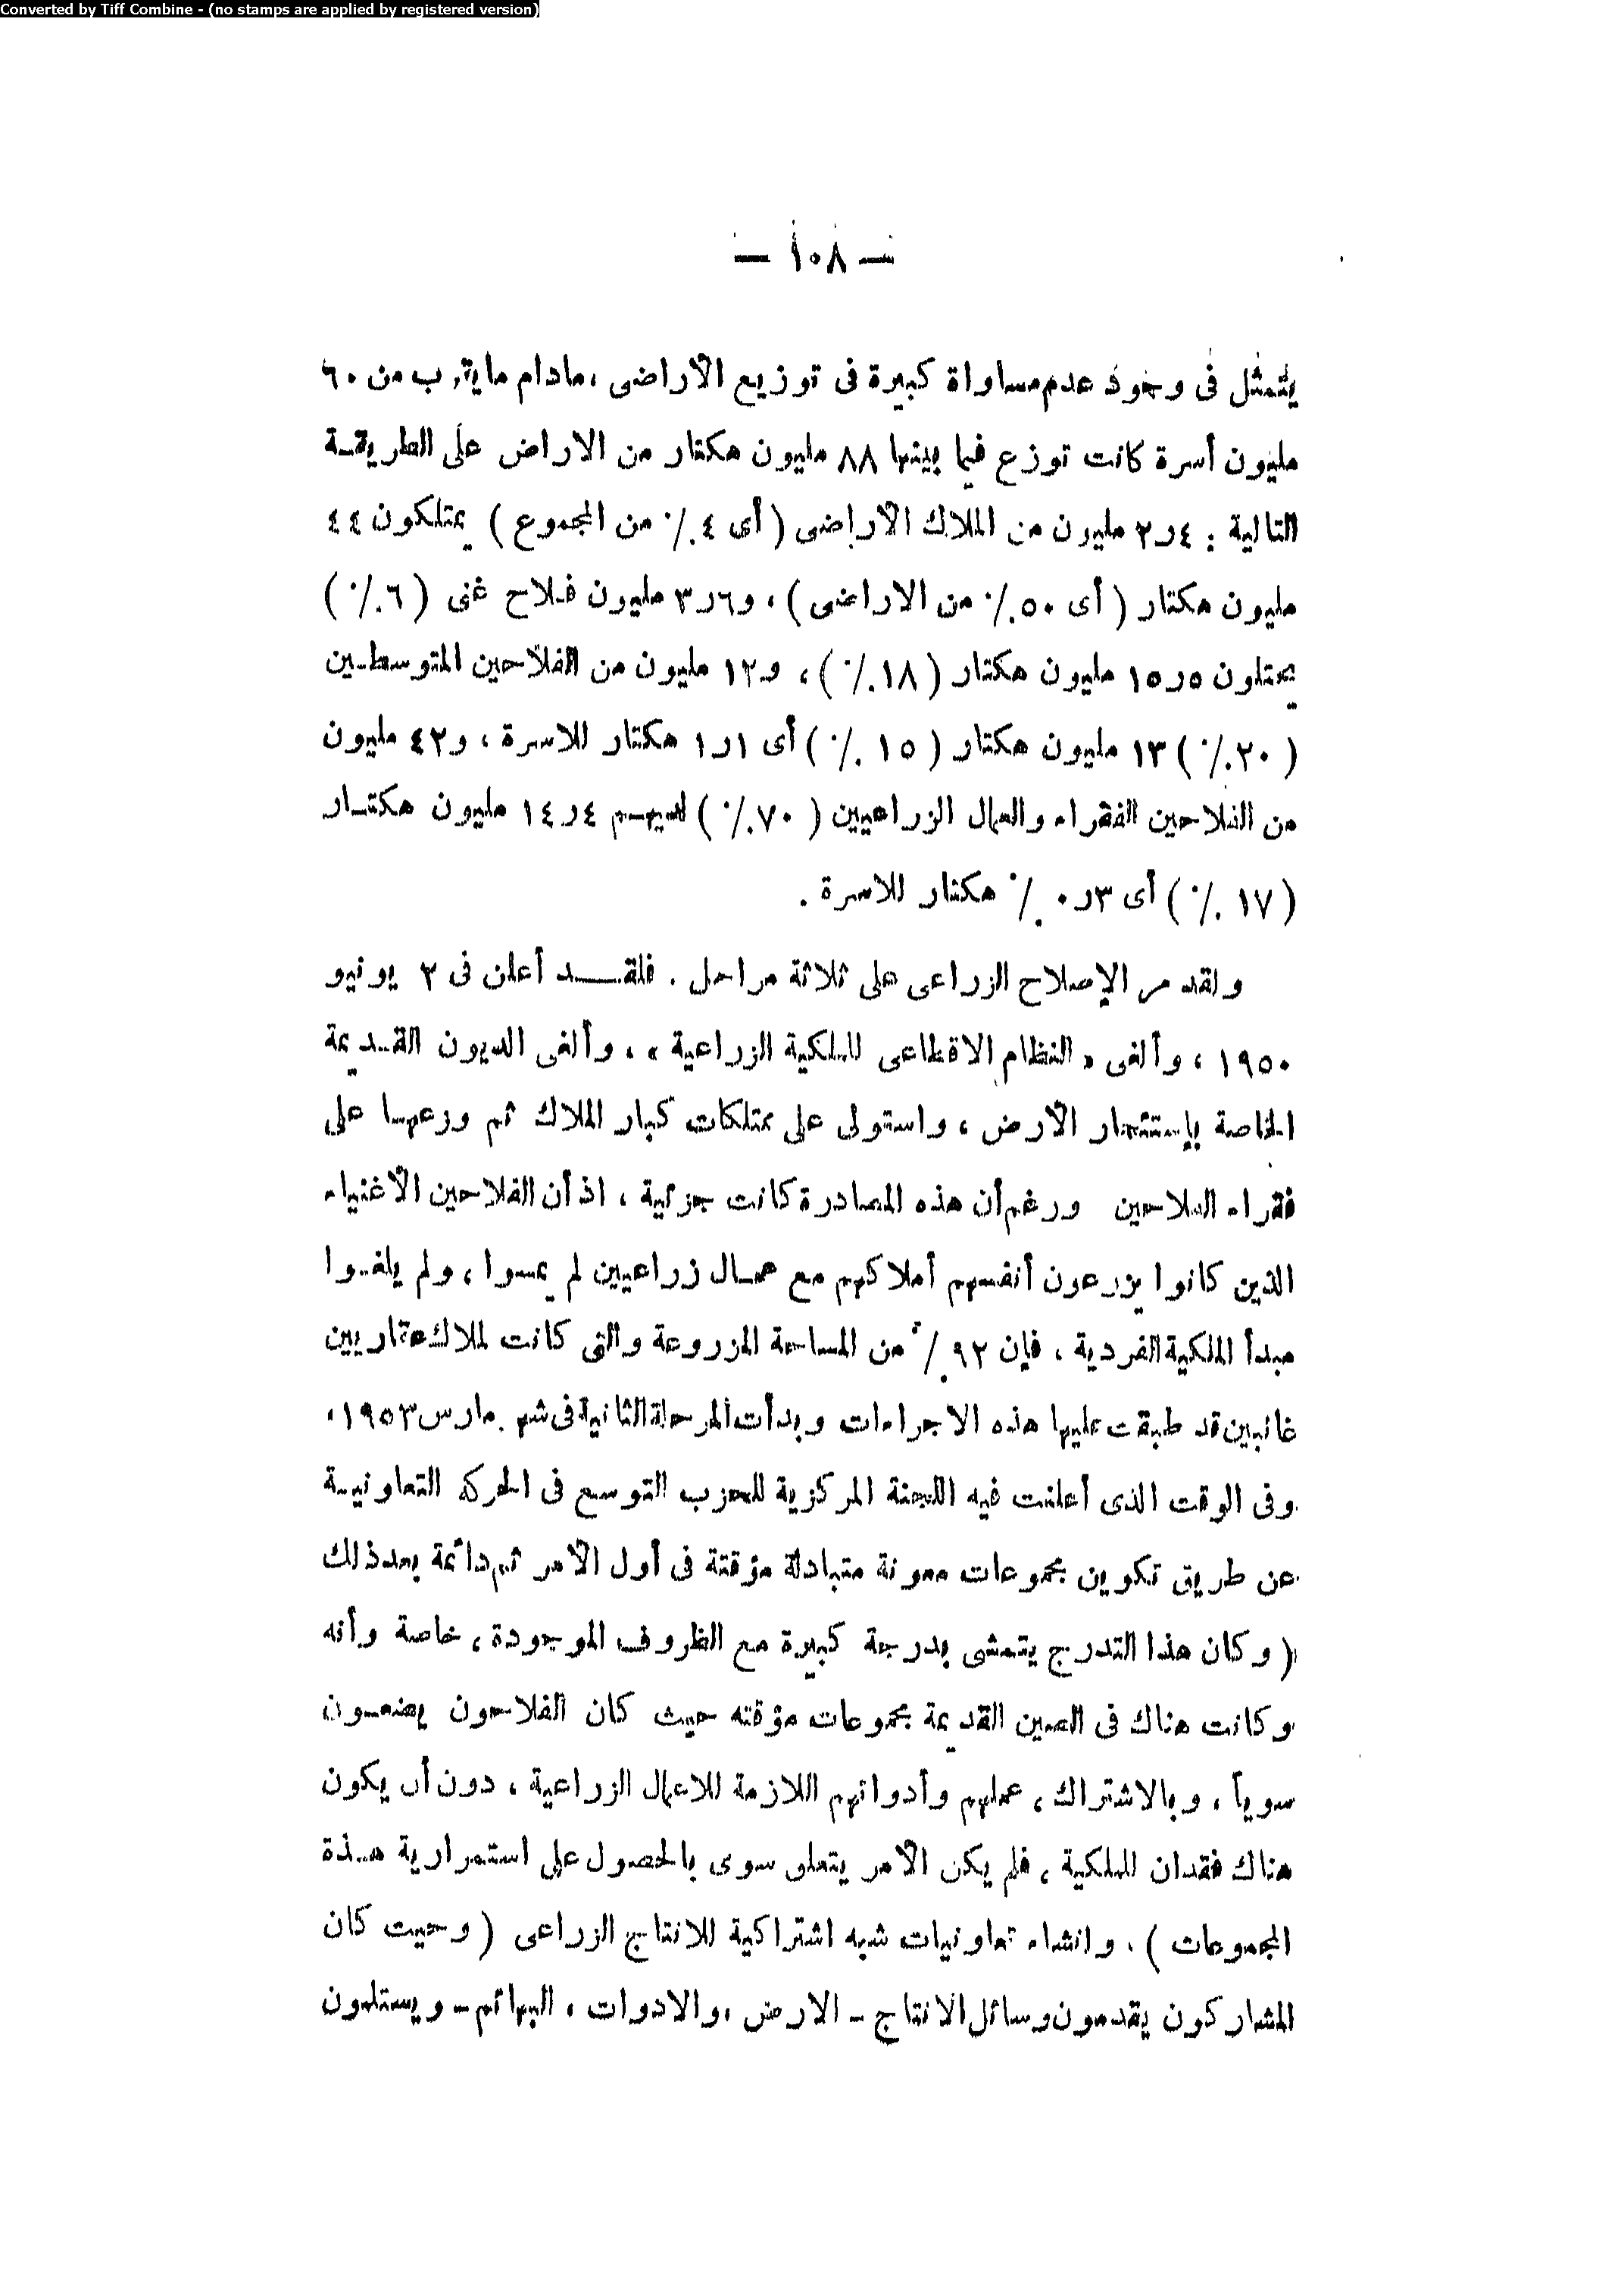 Converted by Tiff Combine - (no stamps are applied by registered version)
— ١٠٨ —
يتمثل فى وجود عدم مساواة كبيرة فى توزيع الأراضى ، مادام مايقرب من ٦٠
مليون أسرة كانت توزع فيما بينها ٨٨ مليون هكتار من الاراض على الطريقة
التالية : ٢٫٤ مليون من الملاك الأراضى ( أى ٤٪ من المجموع ) يمتلكون ٤٤
مليون هكتار ( أى ٥٠٪ من الاراضى ) ، و٣٫٦ مليون فلاح غنى ( ٦٪ )
يحتلون ١٥٫٥ مليون هكتار ( ١٨٪ ) ، و١٢ مليون من الفلاحين المتوسطين
( ٢٠٪ ) ١٣ مليون هكتار ( ١٥ ٪ ) أى ١٫١ هكتار للاسرة ، و٤٢ مليون
من الفلاحين الفقراء والعمال الزراعيين ( ٧٠٪ ) لديهم ١٤٫٤ مليون هكتار
( ١٧ ٪ ) أى ٠٫٣ ٪ هكتار للاسرة .
ولقد مر الإصلاح الزراعى على ثلاثة مراحل . فلقد أعلن فى ٢ يونيو
١٩٥٠ ، وألغى « النظام الاقطاعى للملكية الزراعية » ، وألغى الديون القديمة
الخاصة بإستثمار الأرض ، واستولى على ممتلكات كبار الملاك ثم وزعها على
فقراء الفلاحين ورغم أن هذه المصادرة كانت جزئية ، اذ أن الفلاحين الأغنياء
الذين كانوا يزرعون أنفسهم أملاكهم مع عمال زراعيين لم يمسوا ، ولم يلغوا
مبدأ الملكية الفردية ، فإن ٩٢ ٪ من المساحة المزروعة والتى كانت لملاك عقاريين
غائبين قد طبقت عليها هذه الاجراءات وبدأت المرحلة الثانية فى شهر مارس ١٩٥٣ ،
وفى الوقت الذى أعلنت فيه اللجنة المركزية للحزب التوسع فى الحركة التعاونية
عن طريق تكوين مجموعات معونة متبادلة مؤقتة فى أول الأمر ثم دائمة بعد ذلك
( وكان هذا التدرج يتمشى بدرجة كبيرة مع الظروف الموجودة ، خاصة وأنه
وكانت هناك فى الصين القديمة مجموعات مؤقته حيث كان الفلاحون يضعون
سوياً ، وبالاشتراك ، عملهم وأدواتهم اللازمة للاعمال الزراعية ، دون أن يكون
هناك فقدان للملكية ، فلم يكن الأمر يتعلق سوى بالحصول على استمرارية هذة
المجموعات ) . وانشاء تعاونيات شبه اشتراكية للانتاج الزراعى ( وحيت كان
المشاركون يقدمون وسائل الانتاج - الارض ، والادوات ، البهائم - ويستلمون